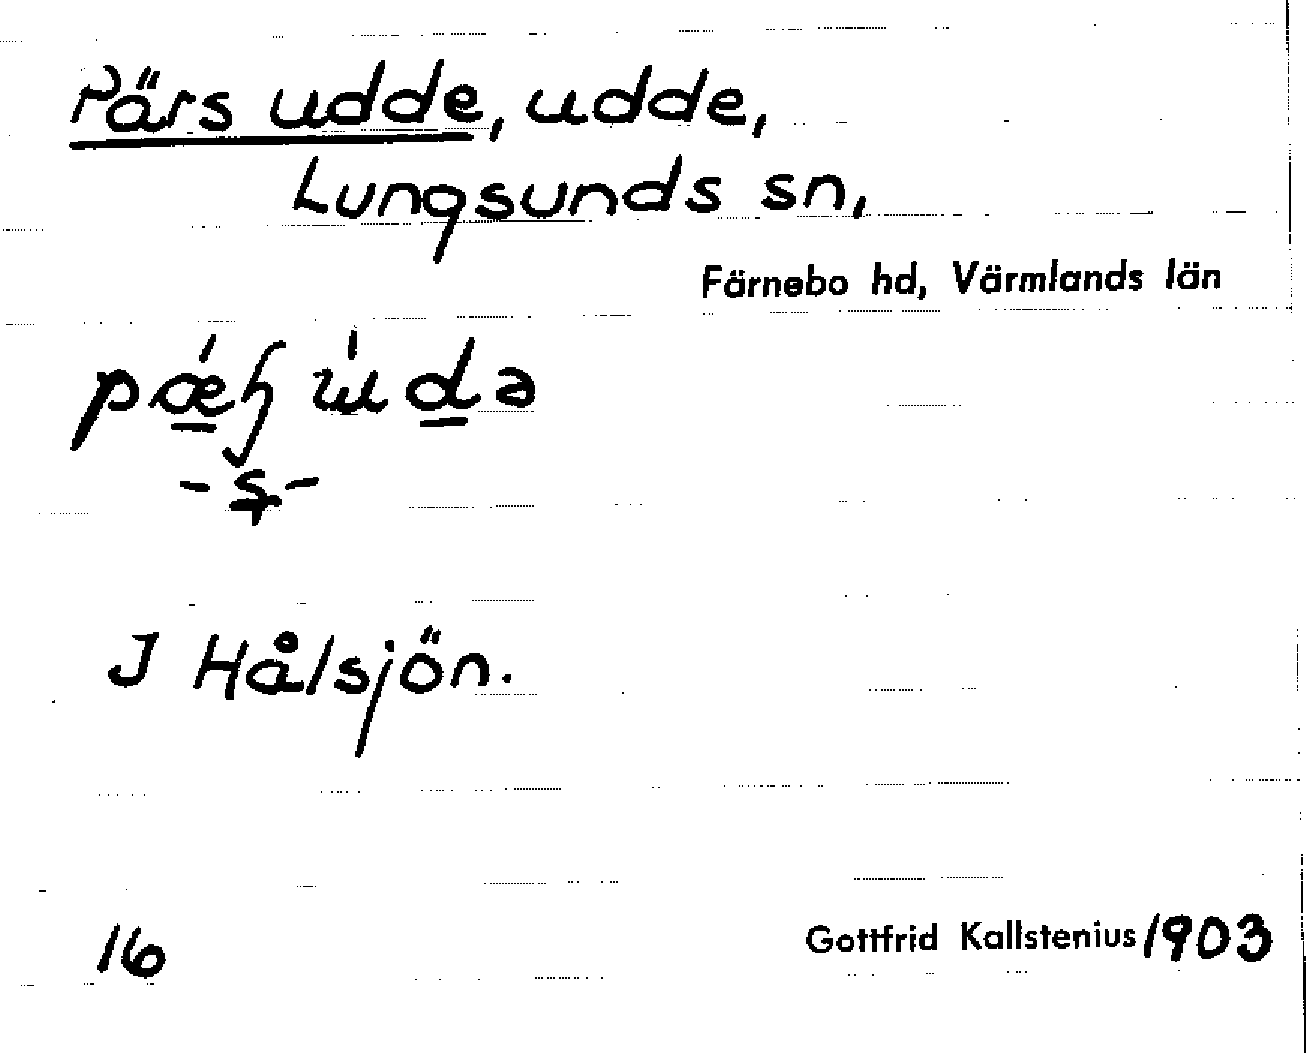 Pärs udde, udde,
Lungsunds sn,
Färnebo hd, Värmlands län
J Hålsjön.
16 Gottfrid Kallstenius 1903